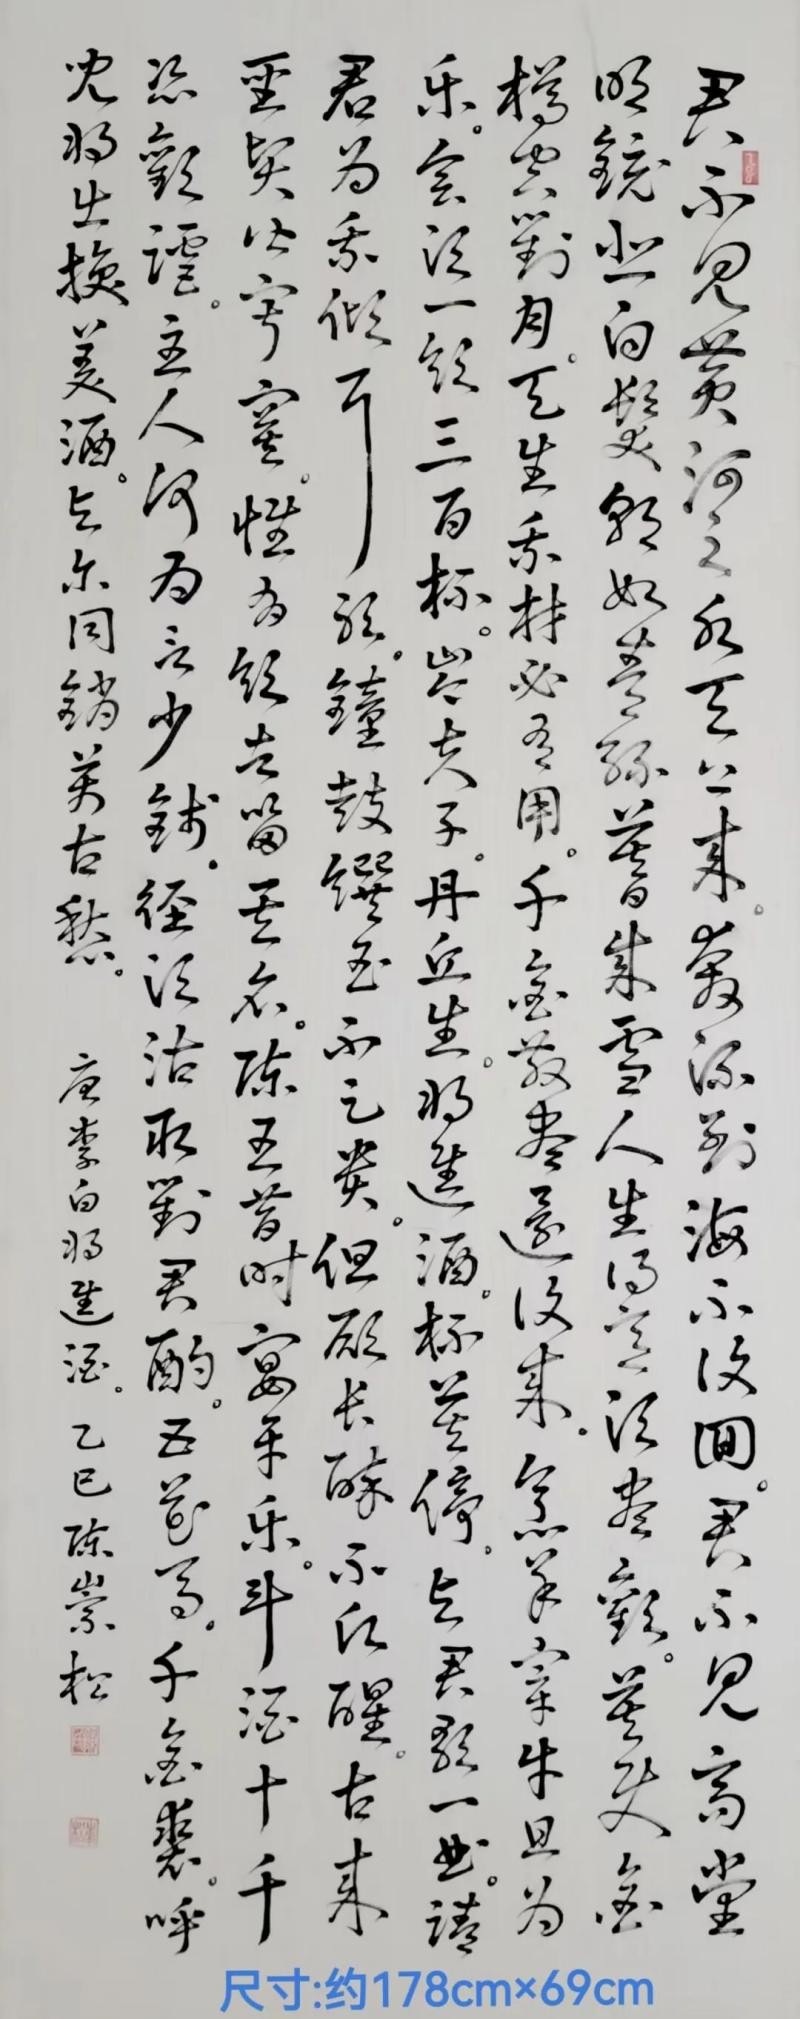 君不见黄河之水天上来。奔流到海不复回。君不见高堂
明镜悲白髮朝如青絲暮成雪人生得意须尽歡。莫使金
樽空對月。天生我材必有用。千金散尽还复来。烹羊宰牛且为
乐。会须一饮三百杯。岑夫子。丹丘生。将進酒。杯莫停。与君歌一曲。請
君为我倾耳聽。鐘鼓饌玉不足贵。但願长醉不願醒。古来
圣贤皆寂寞。惟有饮者留其名。陈王昔时宴平乐。斗酒十千
恣歡謔。主人何为言少錢。径须沽取對君酌。五花马。千金裘。呼
兒将出换美酒。与尔同銷萬古愁。
唐李白将進酒。乙巳陈崇松
尺寸:约178cm×69cm